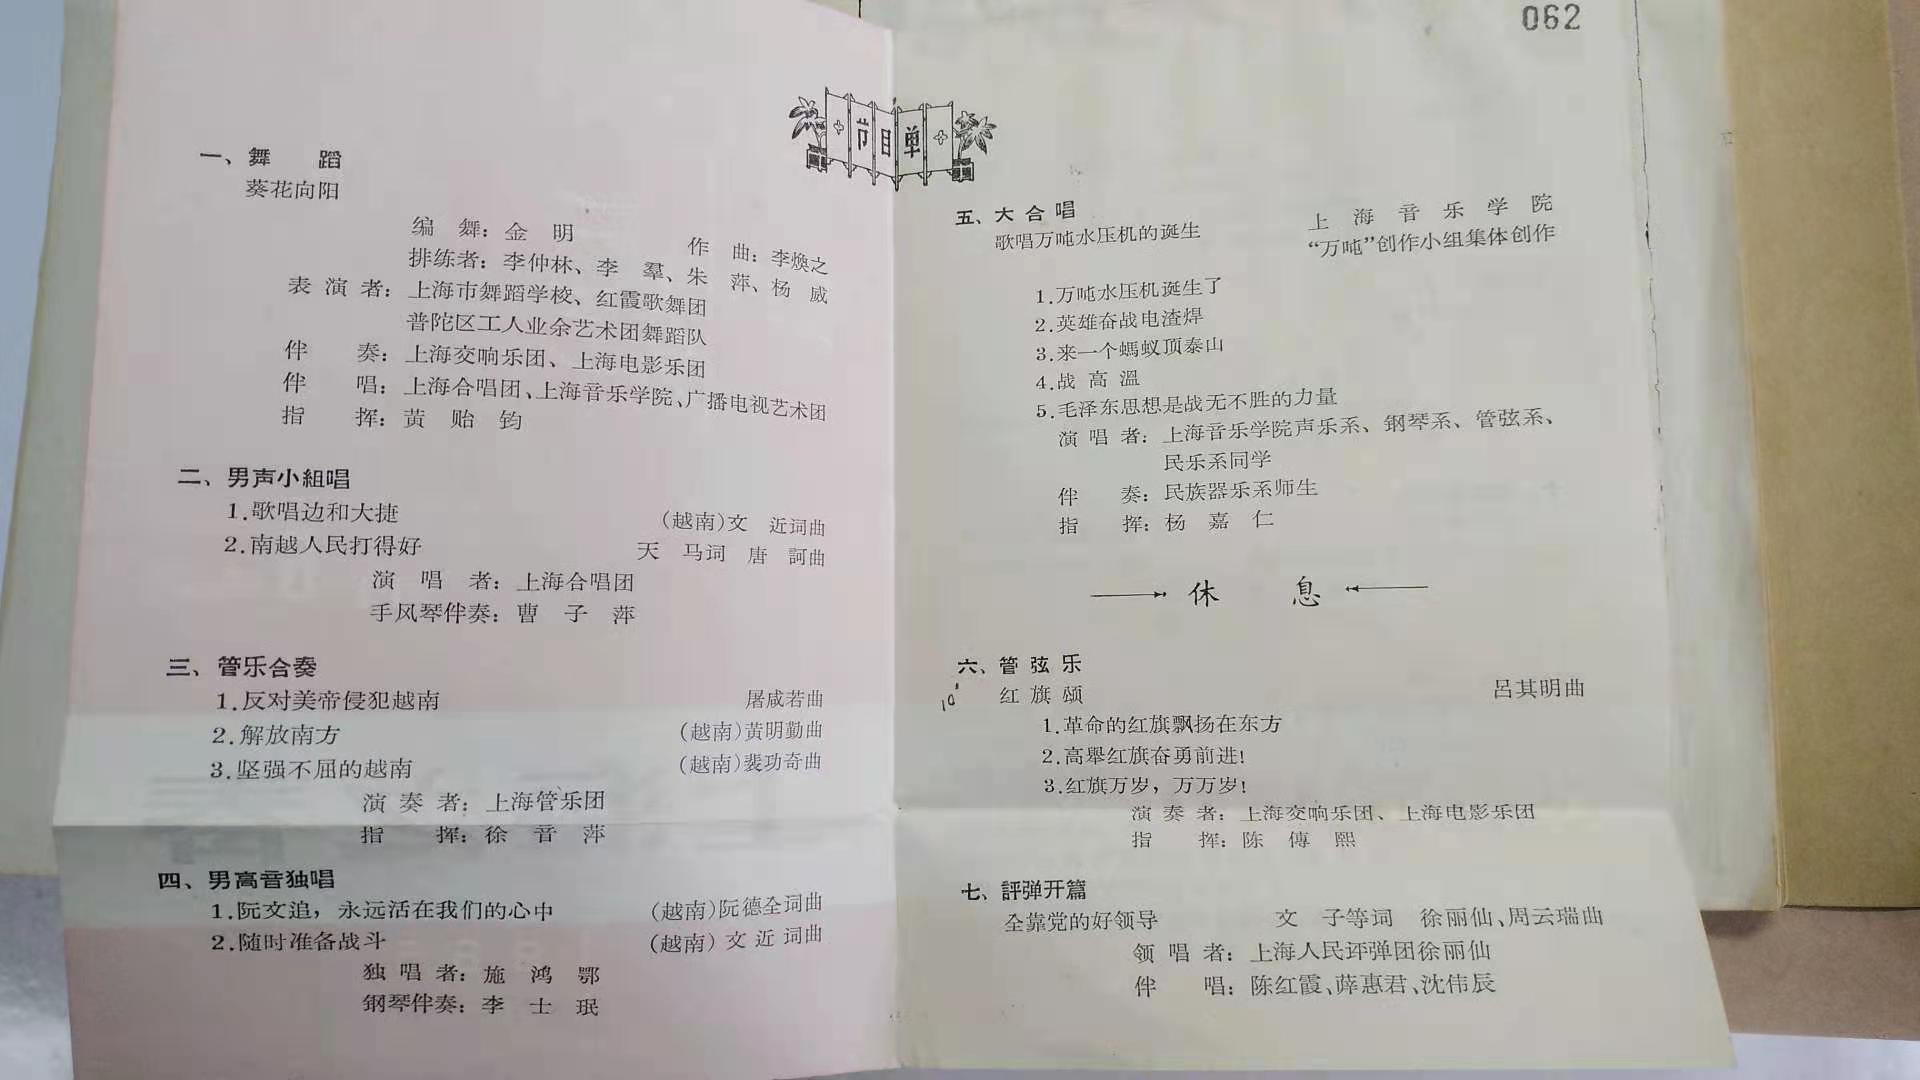 062
节目单
一、舞 蹈
葵花向阳
编 舞：金 明 作 曲：李焕之
排练者：李仲林、李 羣、朱 萍、杨 威
表演者：上海市舞蹈学校、红霞歌舞团
普陀区工人业余艺术团舞蹈队
伴 奏：上海交响乐团、上海电影乐团
伴 唱：上海合唱团、上海音乐学院、广播电视艺术团
指 挥：黄 贻 钧
二、男声小組唱
1.歌唱边和大捷 （越南）文 近词曲
2.南越人民打得好 天 马词 唐 訶曲
演 唱 者：上海合唱团
手风琴伴奏：曹 子 萍
三、管乐合奏
1.反对美帝侵犯越南 屠咸若曲
2.解放南方 （越南）黃明勤曲
3.坚强不屈的越南 （越南）裴功奇曲
演 奏 者：上海管乐团
指 挥：徐 音 萍
四、男高音独唱
1.阮文追，永远活在我们的心中 （越南）阮德全词曲
2.随时准备战斗 （越南）文 近 词曲
独 唱 者：施 鸿 鄂
钢琴伴奏：李 士 珉
五、大合唱 上 海 音 乐 学 院
歌唱万吨水压机的诞生 “万吨”创作小组集体创作
1.万吨水压机诞生了
2.英雄奋战电渣焊
3.来一个螞蚁顶泰山
4.战 高 溫
5.毛泽东思想是战无不胜的力量
演 唱 者：上海音乐学院声乐系、钢琴系、管弦系、
民乐系同学
伴 奏：民族器乐系师生
指 挥：杨 嘉 仁
休 息
六、管 弦 乐
10' 红 旗 颂 呂其明曲
1.革命的红旗飘扬在东方
2.高舉红旗奋勇前进！
3.红旗万岁，万万岁！
演 奏 者：上海交响乐团、上海电影乐团
指 挥：陈 傳 熙
七、評弹开篇
全靠党的好领导 文 子等词 徐丽仙、周云瑞曲
领 唱 者：上海人民评弹团徐丽仙
伴 唱：陈红霞、薛惠君、沈伟辰